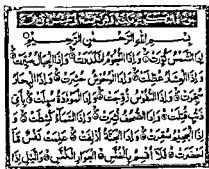 بِسْمِ اللّٰهِ الرَّحْمٰنِ الرَّحِيْمِ
اِذَا الشَّمْسُ كُوِّرَتْ وَاِذَا النُّجُوْمُ انْكَدَرَتْ وَاِذَا الْجِبَالُ سُيِّرَتْ
وَاِذَا الْعِشَارُ عُطِّلَتْ وَاِذَا الْوُحُوْشُ حُشِرَتْ وَاِذَا الْبِحَارُ
سُجِّرَتْ وَاِذَا النُّفُوْسُ زُوِّجَتْ وَاِذَا الْمَوْءٗدَةُ سُئِلَتْ بِاَيِّ
ذَنْبٍ قُتِلَتْ وَاِذَا الصُّحُفُ نُشِرَتْ وَاِذَا السَّمَآءُ كُشِطَتْ وَ
اِذَا الْجَحِيْمُ سُعِّرَتْ وَاِذَا الْجَنَّةُ اُزْلِفَتْ عَلِمَتْ نَفْسٌ مَّآ
اَحْضَرَتْ فَلَآ اُقْسِمُ بِالْخُنَّسِ الْجَوَارِ الْكُنَّسِ وَالَّيْلِ اِذَا